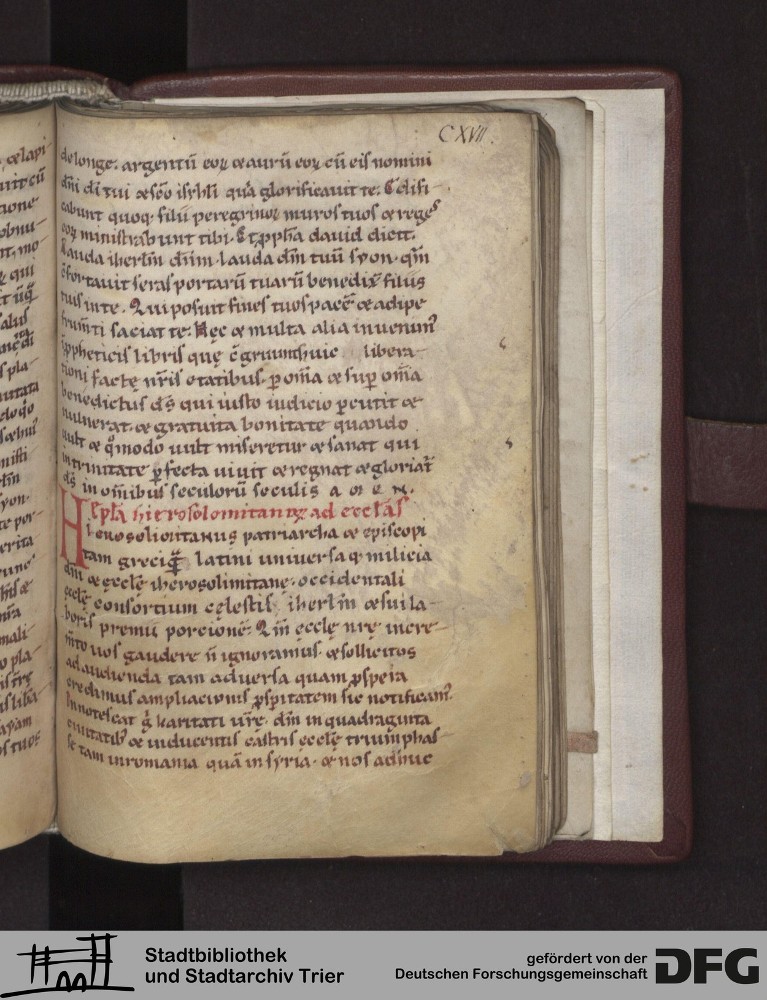 CXVII.
de longe. argentū eoꝝ & aurū eoꝝ cū eis nomini
dn̄i di tui & sc̄o isrl̄i quia glorificauit te. Edifi-
cabunt quoq; filii peregrinoꝝ muros tuos & reges
eoꝝ ministrabunt tibi. Et ꝓpha dauid dicit.
Lauda iherlm̄ dn̄m. lauda dm̄ tuū syon. qm̄
cfortauit seras portarū tuarū benedix filiis
tuis in te. Qui posuit fines tuos pacē & adipe
frumti saciat te. Hec & multa alia inuenim
ꝓpheticis libris quę cgruunt huic libera-
tioni factę nr̄is etatibus. ꝑ om̄a & sup om̄a
benedictus ds̄ qui iusto iudicio ꝑcutit &
uulnerat. & gratuita bonitate quando
uult & qͦmodo uult miseretur & sanat qui
in trinitate ꝑfecta uiuit & regnat & gloriat
ds̄ in om̄ibus seculorū seculis amen.
Eplā hierosolomitani ad eccłas
Hierosolimitanus patriarcha & episcopi
tam greci qͣ latini uniuersaq; milicia
dn̄i & ęcclę iherosolimitanę. occidentali
ęcclę consortium cęlestis iherlm̄ & sui la-
boris premii porcionē. Qm̄ ęcclę nrę incre-
mto uos gaudere n̄ ignoramus. & sollicitos
ad audienda tam aduersa quam ꝓspera
credimus ampliacionis ꝓspitatem sic notificam
Innotescat ḡ karitati urę. dm̄ in quadraginta
ciuitatib; & in ducentis castris ęcclę triumphas-
se tam in romania quā in syria. & nos adhuc
Stadtbibliothek
und Stadtarchiv Trier
gefördert von der
Deutschen Forschungsgemeinschaft
DFG